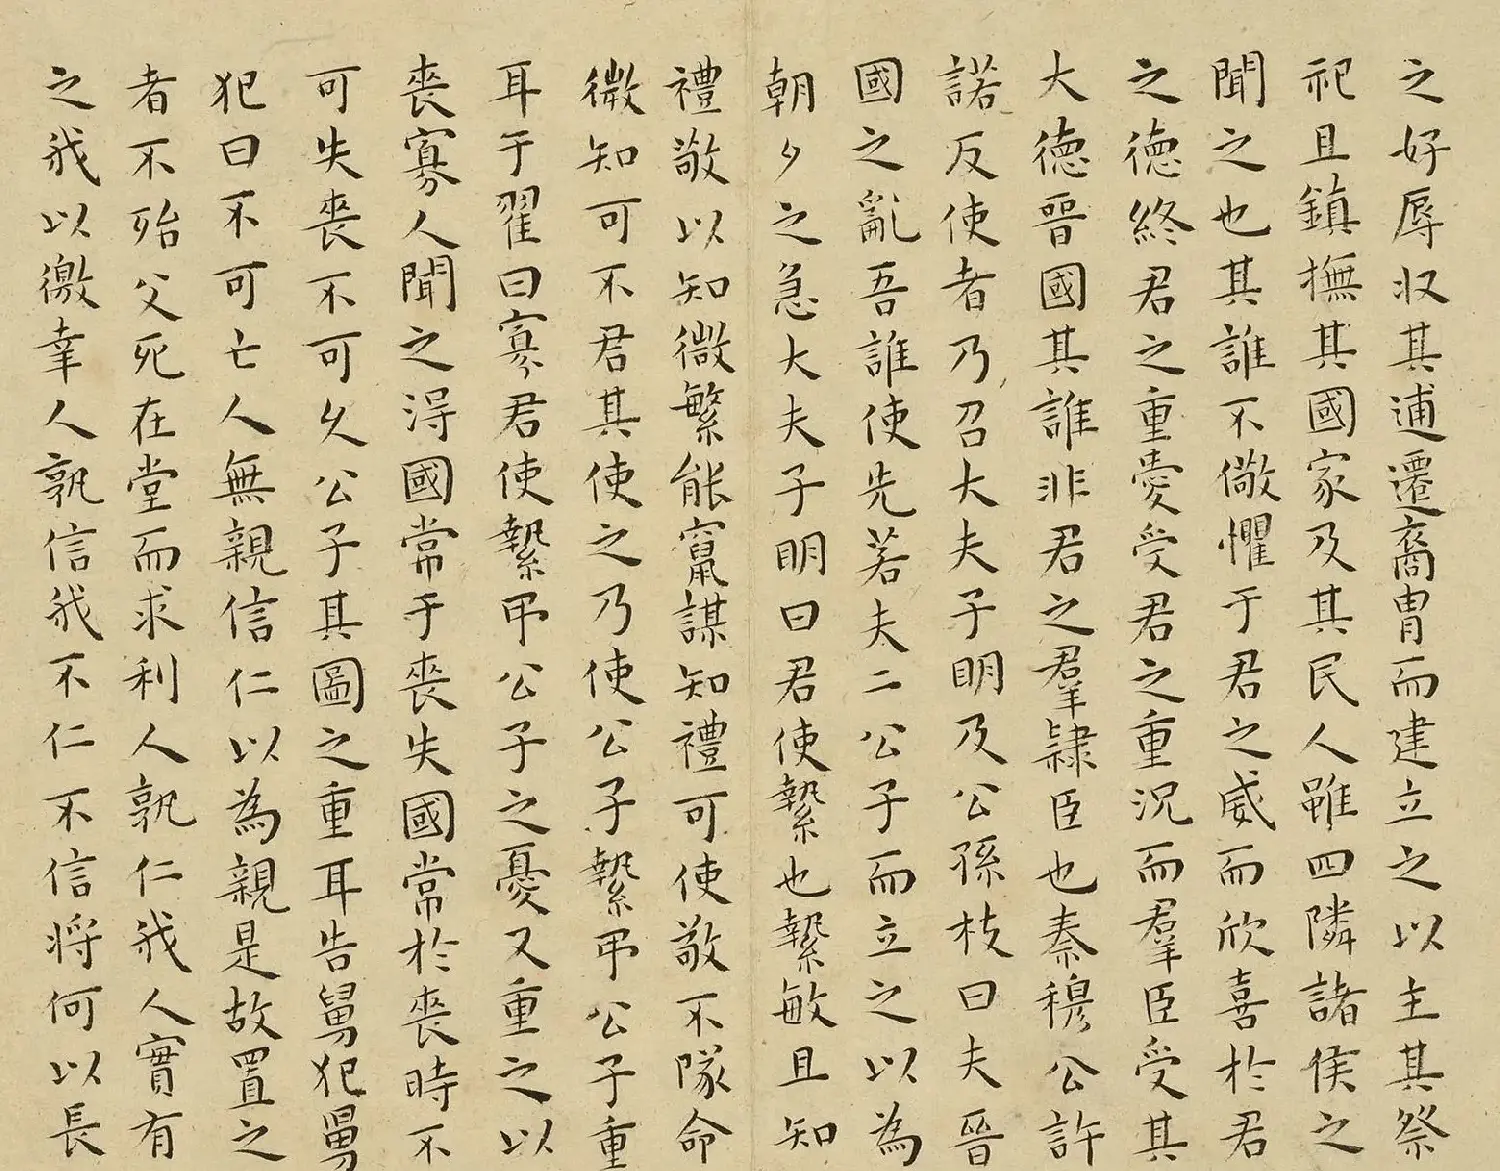 之好辱収其逋遷裔冑而建立之以主其祭
祀且鎮撫其國家及其民人雖四隣諸侯之
聞之也其誰不儆懼于君之威而欣喜於君
之德終君之重愛受君之重況而羣臣受其
大德晉國其誰非君之羣隸臣也秦穆公許
諾反使者乃召大夫子明及公孫枝曰夫晉
國之亂吾誰使先若夫二公子而立之以為
朝夕之急大夫子明曰君使縶也縶敏且知
禮敬以知微繁能竄謀知禮可使敬不隊命
微知可不君其使之乃使公子縶弔公子重
耳于翟曰寡君使縶弔公子之憂又重之以
喪寡人聞之得國常于喪失國常於喪時不
可失喪不可久公子其圖之重耳告舅犯舅
犯曰不可亡人無親信仁以為親是故置之
者不殆父死在堂而求利人孰仁我人實有
之我以徼幸人孰信我不仁不信將何以長